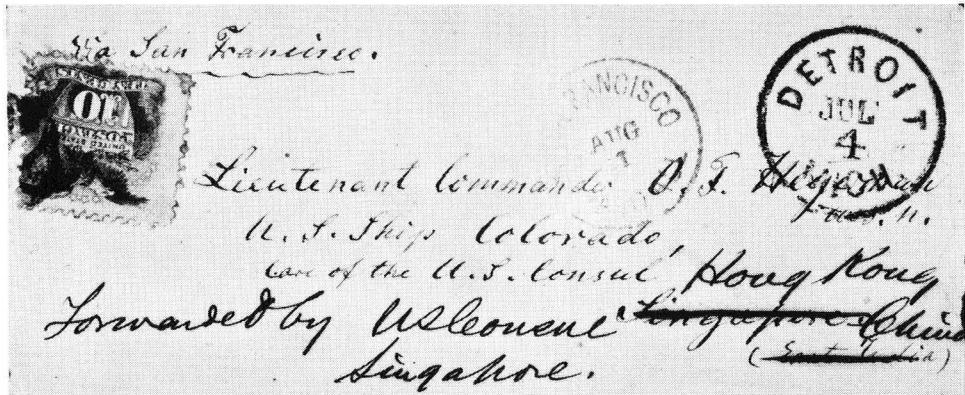 Via San Francisco.
UNITED STATES
POSTAGE
10
FRANCISCO
AUG
1
DETROIT
JUL
4
MICH
Lieutenant Commander
U.S.N.
U. S. Ship Colorado,
Care of the U.S. Consul Hong Kong
Forwarded by US Consul Singapore China
(East India)
Singapore.